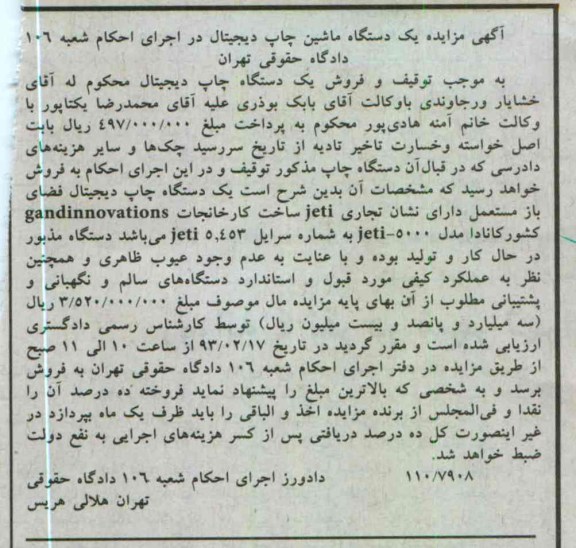 آگهی مزایده یک دستگاه ماشین چاپ دیجیتال در اجرای احکام شعبه ۱۰۶
دادگاه حقوقی تهران
به موجب توقیف و فروش یک دستگاه چاپ دیجیتال محکوم له آقای
خشایار ورجاوندی باوکالت آقای بابک بوذری علیه آقای محمدرضا یکتاپور با
وکالت خانم آمنه هادی‌پور محکوم به پرداخت مبلغ ۴۹۷/۰۰۰/۰۰۰ ریال بابت
اصل خواسته وخسارت تاخیر تادیه از تاریخ سررسید چک‌ها و سایر هزینه‌های
دادرسی که در قبال‌آن دستگاه چاپ مذکور توقیف و در این اجرای احکام به فروش
خواهد رسید که مشخصات آن بدین شرح است یک دستگاه چاپ دیجیتال فضای
باز مستعمل دارای نشان تجاری jeti ساخت کارخانجات gandinnovations
کشورکانادا مدل jeti-۵۰۰۰ به شماره سرایل jeti ۵,۴۵۳ می‌باشد دستگاه مذبور
در حال کار و تولید بوده و با عنایت به عدم وجود عیوب ظاهری و همچنین
نظر به عملکرد کیفی مورد قبول و استاندارد دستگاه‌های سالم و نگهبانی و
پشتیبانی مطلوب از آن بهای پایه مزایده مال موصوف مبلغ ۳/۵۲۰/۰۰۰/۰۰۰ ریال
(سه میلیارد و پانصد و بیست میلیون ریال) توسط کارشناس رسمی دادگستری
ارزیابی شده است و مقرر گردید در تاریخ ۹۳/۰۲/۱۷ از ساعت ۱۰ الی ۱۱ صبح
از طریق مزایده در دفتر اجرای احکام شعبه ۱۰۶ دادگاه حقوقی تهران به فروش
برسد و به شخصی که بالاترین مبلغ را پیشنهاد نماید فروخته ده درصد آن را
نقدا و فی‌المجلس از برنده مزایده اخذ و الباقی را باید ظرف یک ماه بپردازد در
غیر اینصورت کل ده درصد دریافتی پس از کسر هزینه‌های اجرایی به نفع دولت
ضبط خواهد شد.
۱۱۰/۷۹۰۸ دادورز اجرای احکام شعبه ۱۰۶ دادگاه حقوقی
تهران هلالی هریس